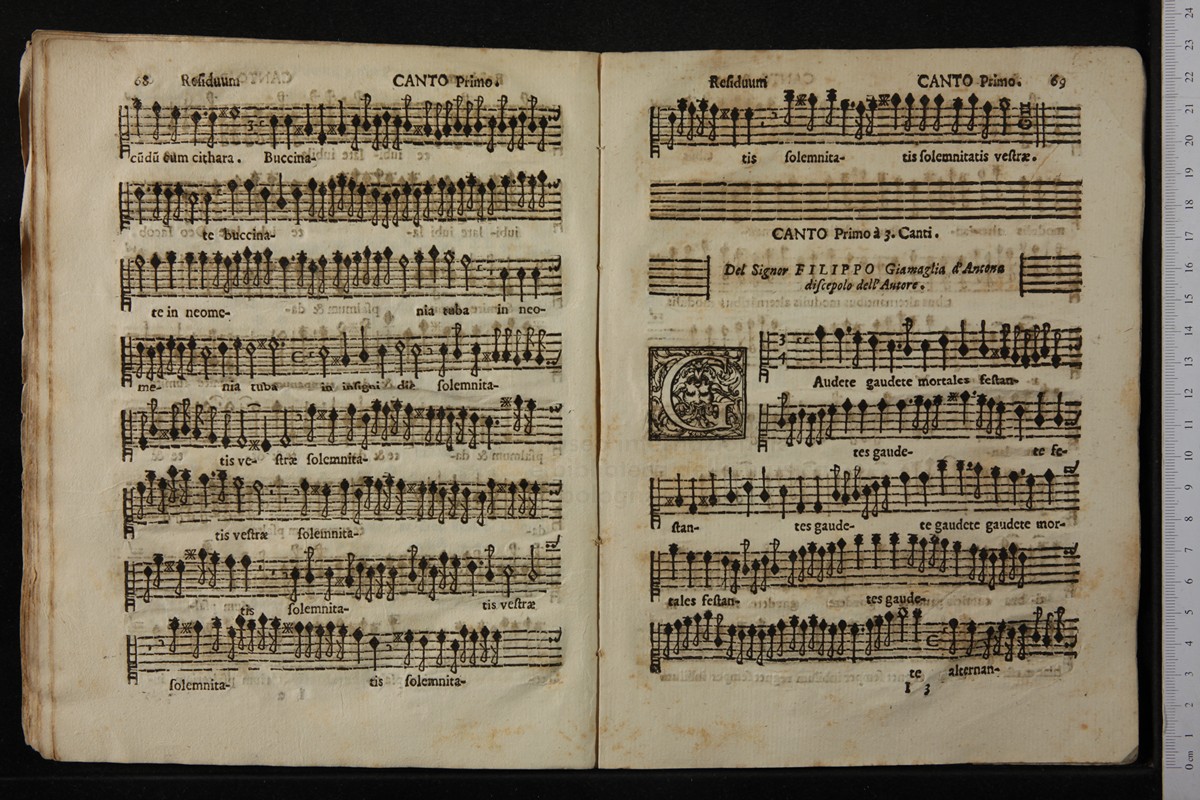 68 Residuum CANTO Primo.
cūdū cum cithara. Buccina-
te buccina-
te in neome- nia tuba in neo-
me- nia tuba in insigni die solemnita-
tis ve- stræ solemnita-
tis vestræ solemnita-
tis solemnita- tis vestræ
solemnita- tis solemnita-
Residuum CANTO Primo. 69
tis solemnita- tis solemnitatis vestræ.
CANTO Primo à 3. Canti.
Del Signor FILIPPO Giamaglia d'Ancona
discepolo dell'Autore.
Audete gaudete mortales festan-
tes gaude- te fe-
stan- tes gaude- te gaudete gaudete mor-
tales festan- tes gaude-
te alternan-
I 3